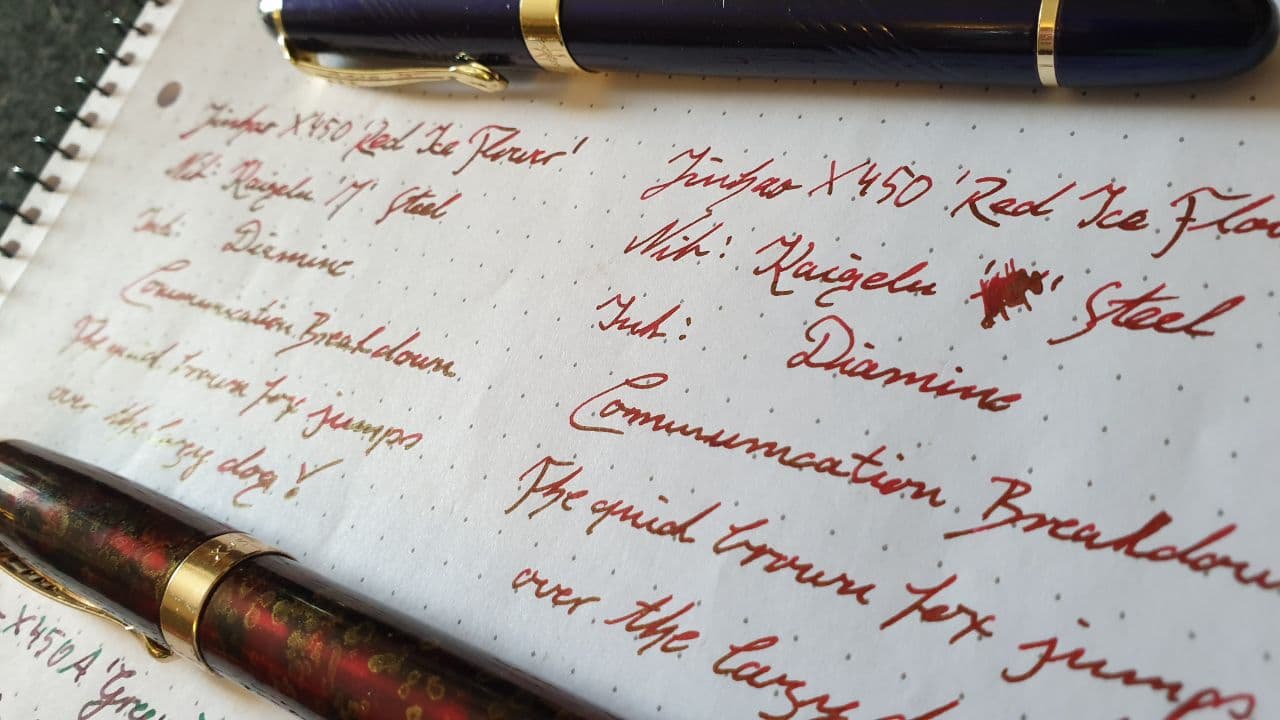 Jinhao X450 'Red Ice Flower'
Nib: Kaigelu 'M' Steel
Ink: Diamine
Communication Breakdown.
The quick brown fox jumps
over the lazy dog!
Jinhao X450 'Red Ice Flo
Nib: Kaigelu ' ' Steel
Ink: Diamine
Communication Breakdow
The quick brown fox jumps
over the lazy d
X450A 'Gree